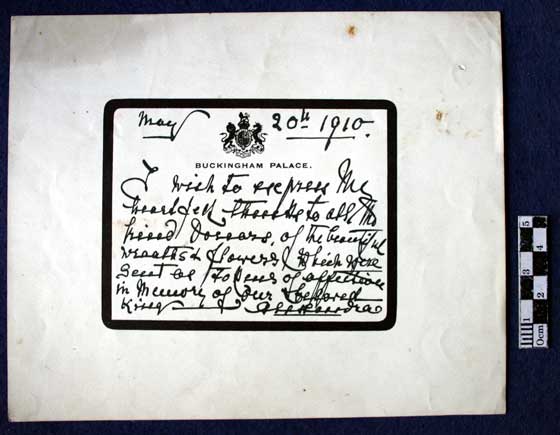 May 20th 1910.
BUCKINGHAM PALACE.
I wish to express my
heartfelt thanks to all the
kind Donors, of the beautiful
wreaths & flowers which were
sent as tokens of affection
in Memory of our beloved
King
Alexandra
5
4
3
2
1
0cm
1
2